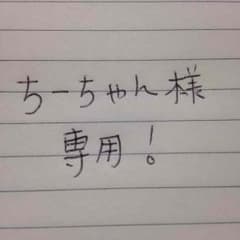 ちーちゃん様
専用!